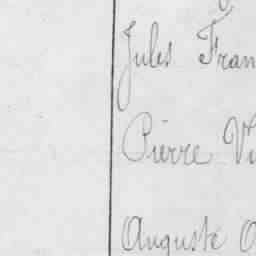 Jules Fran
Pierre Vi
Auguste